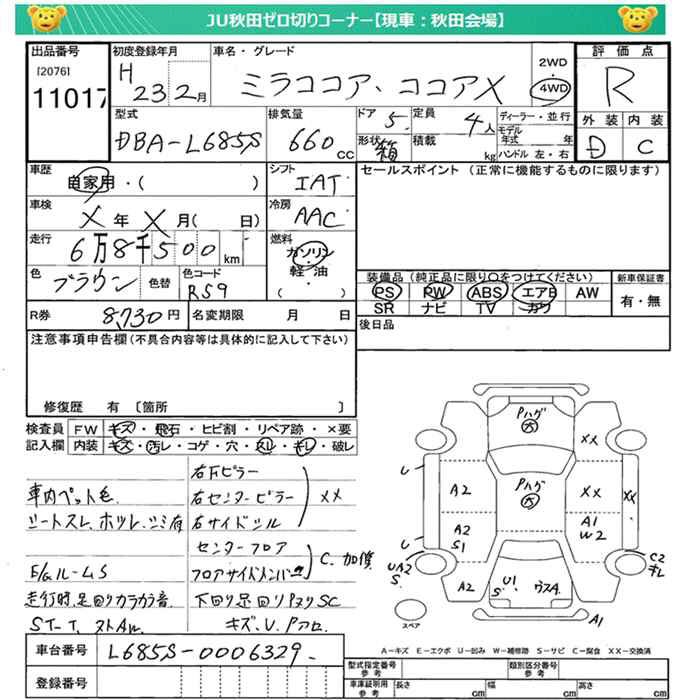 JU秋田ゼロ切りコーナー【現車：秋田会場】
出品番号
[2076]
11017
初度登録年月
H 23 2月
車名・グレード
ミラココア、ココアX
2WD
・
4WD
評価点
R
外装 内装
D C
型式
DBA-L685S
排気量
660 CC
ドア 5
形状 箱
定員 4人
積載 kg
ディーラー・並行
モデル年式 年
ハンドル 左・右
車歴
自家用・( )
シフト
IAT
セールスポイント（正常に機能するものに限ります）
車検
X年X月( 日)
冷房
AAC
走行
6万8千500km
燃料
ガソリン
・
軽・油
( )
色
ブラウン
色替
色コード
R59
装備品（純正品に限り○をつけてください）
新車保証書
PS PW ABS エアB AW
SR ナビ TV カワ
有・無
R券 8,730円
名変期限 月 日
後日品
注意事項申告欄（不具合内容等は具体的に記入して下さい）
修復歴 有 〔箇所 〕
検査員記入欄
FW キズ・飛石・ヒビ割・リペア跡・×要
内装 キズ・汚レ・コゲ・穴・スレ・キレ・破レ
車内ペット毛
シートスレ、ホツレ、シミ有
E/gルームS
走行時、足回りカラカラ音
右Fピラー
右センターピラー
右サイドシル
XX
センターフロア
フロアサイドメンバー
C、加修
下回り足回りPヌリSC
キズ、U、Pアロ、
Pハグ
大
XX
U
A2
Pハグ
大
XX
XX
A2
S1
A1
W2
U
UA2
S
A2
U1
S
ウスA
C2
キレ
A1
スペア
A－キズ E－エクボ U－凹み W－補修跡 S－サビ C－腐食 XX－交換済
車台番号
L685S-0006329
登録番号
型式指定番号
参考
類別区分番号
参考
車庫証明用
参考
長さ cm
幅 cm
高さ cm